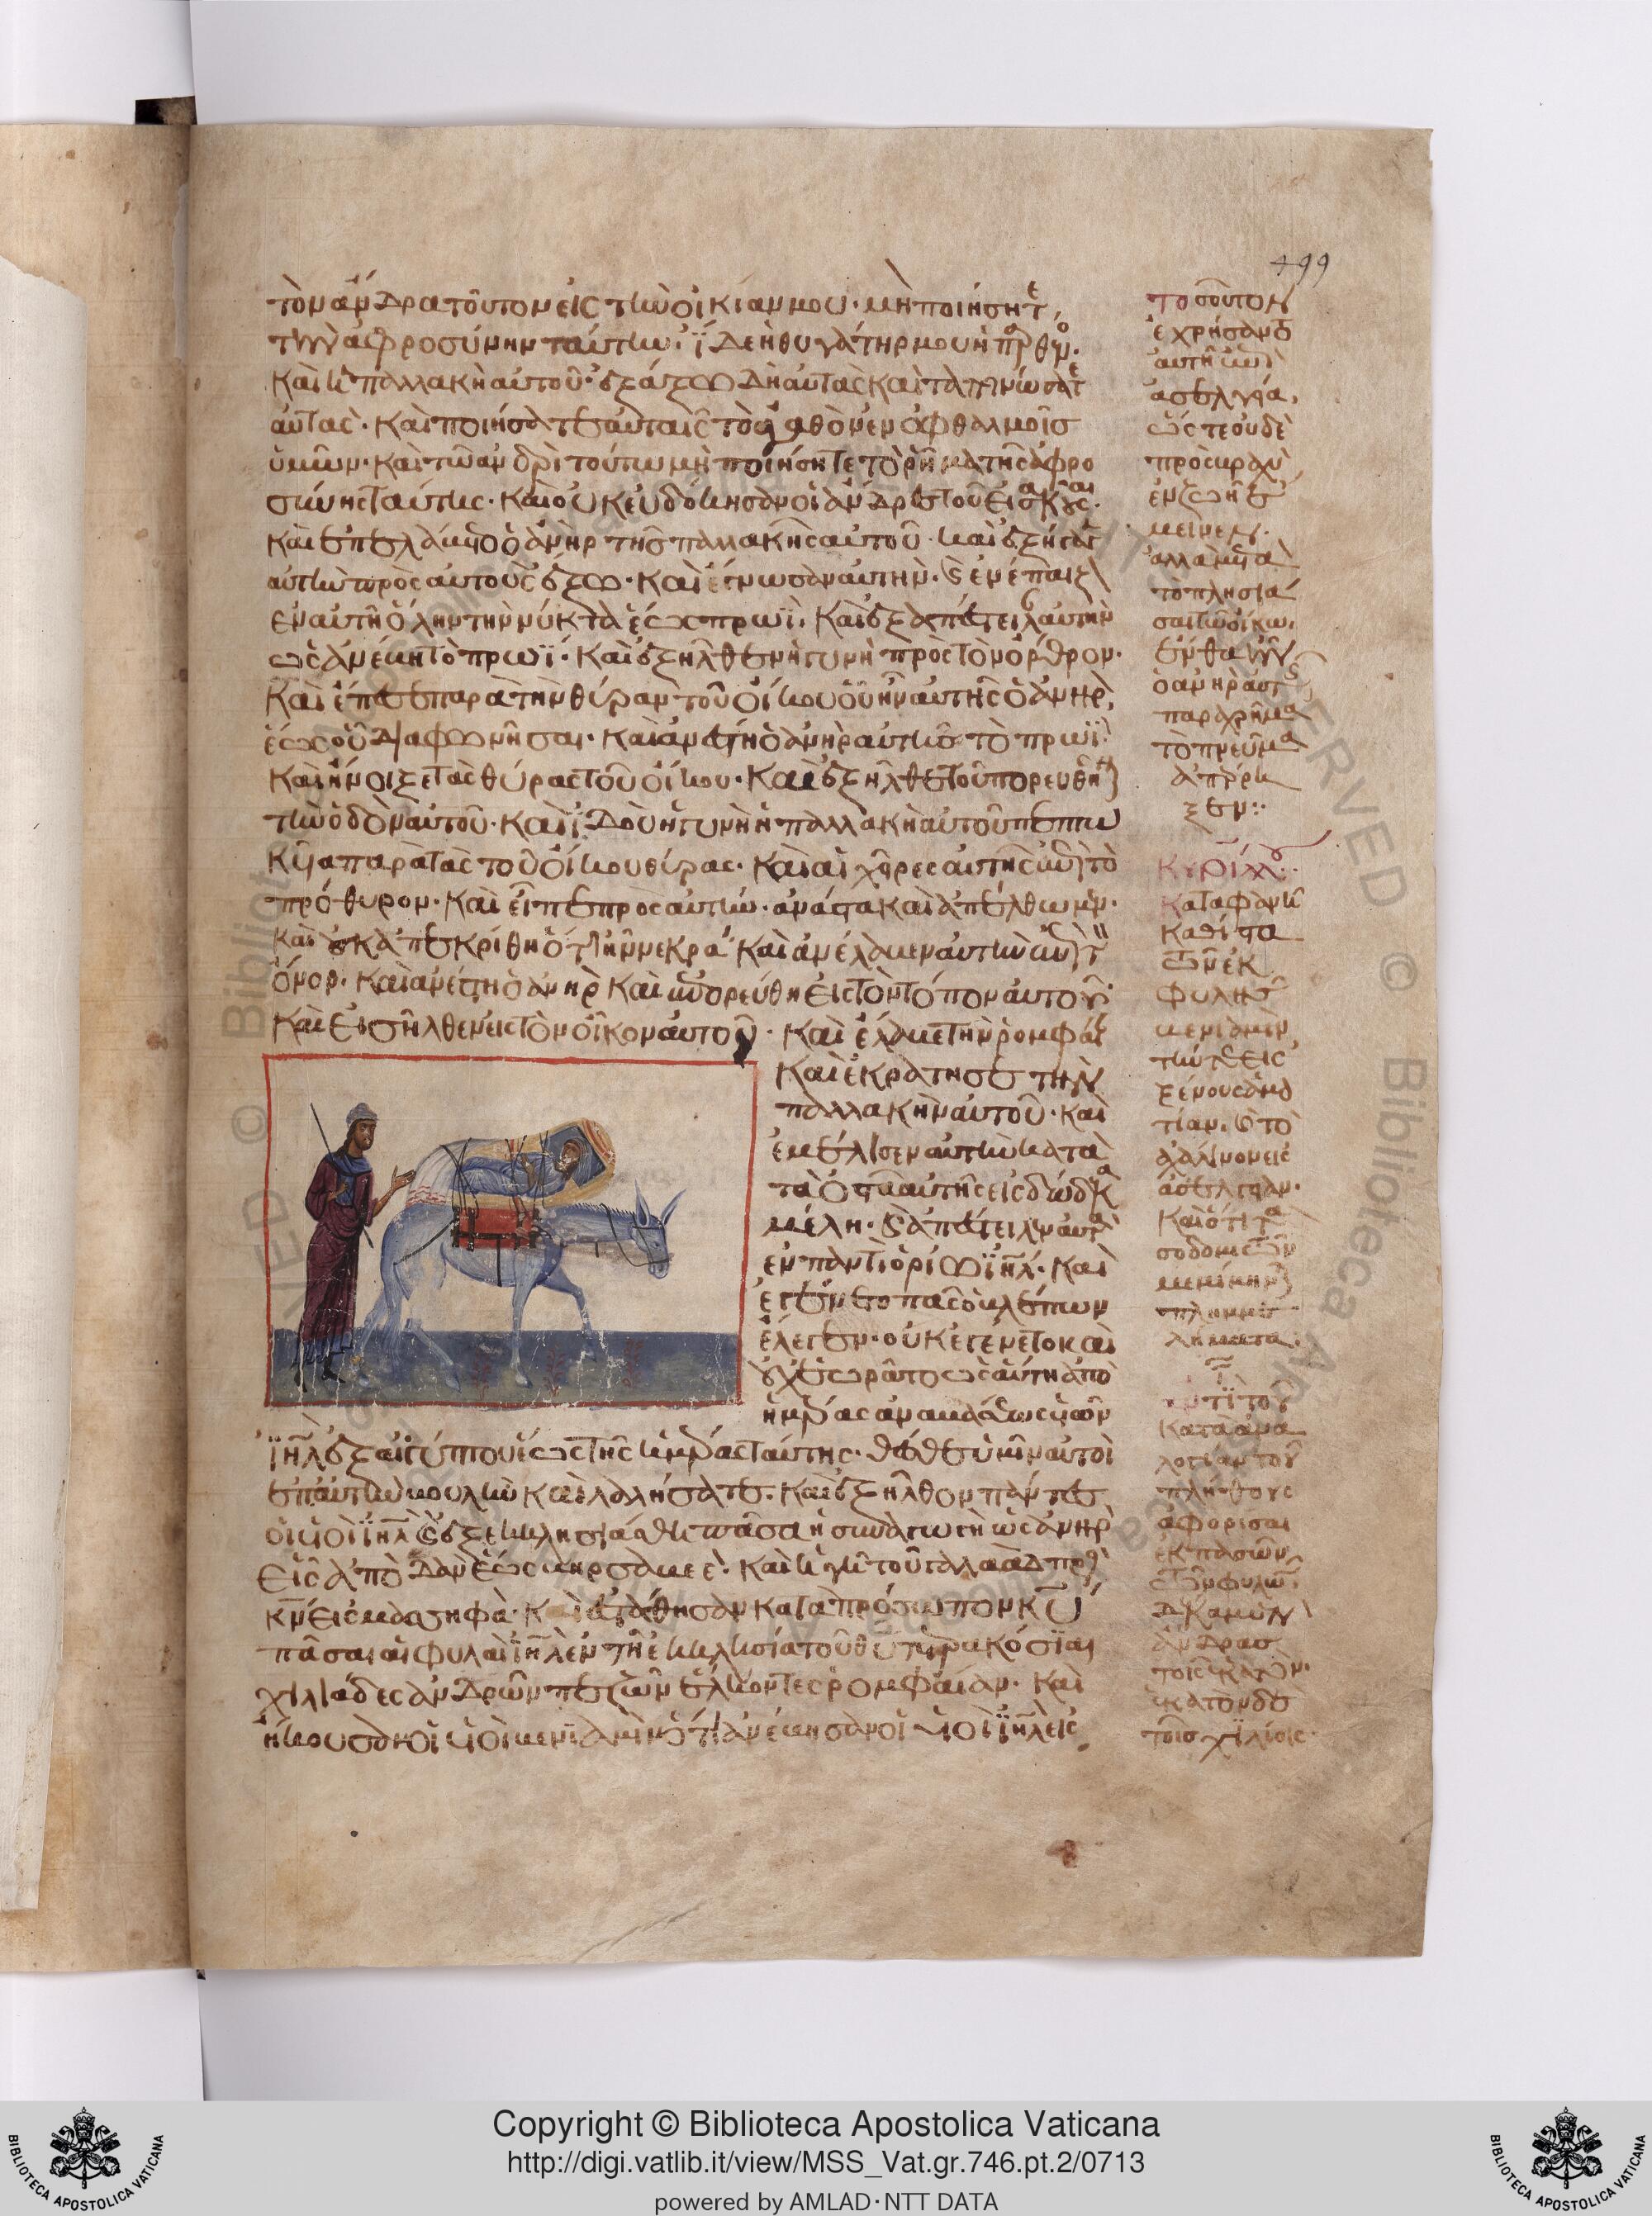 499
τὸν ἄνδρα τοῦτον εἰς τὴν οἰκίαν μου· μὴ ποιήσητε
τὴν ἀφροσύνην ταύτην· ἰδε ἡ θυγάτηρ μου ἡ πρθνο·
Καὶ ἡ παλλακὴ αὐτοῦ· ἐξάξω δὴ αὐτὰς καὶ ταπεινώσατε
αὐτὰς· Καὶ ποιήσατε αὐταῖς τὸ ἀγαθὸν ἐν ὀφθαλμοῖς
ὑμῶν· Καὶ τῶ ἀνδρὶ τούτω μὴ ποιήσητε τὸ ῥῆμα τῆς ἀφρο
σύνης ταύτης· Καὶ οὐκ εὐδόκησαν οἱ ἄνδρες τοῦ εἰσακοῦσαι·
Καὶ ἐπελάβετο ὁ ἀνὴρ τῆς παλλακῆς αὐτοῦ καὶ ἐξήγαγεν
αὐτὴν πρὸς αὐτοὺς ἔξω· Καὶ ἔγνωσαν αὐτὴν· καὶ ἐνέπαιζ
ἐν αὐτῆ ὅλην τὴν νύκτα ἕως πρωΐ· Καὶ ἐξαπέστειλαν αὐτὴν
ὡς ἀνέβη τὸ πρωΐ· Καὶ ἐξῆλθεν ἡ γυνὴ πρὸς τὸν ὄρθρον·
Καὶ ἔπεσε παρὰ τὴν θύραν τοῦ οἴκου οὗ ἦν αὐτῆς ὁ ἀνὴρ,
ἕως οὗ διαφωνῆσαι· Καὶ ἀνέστη ὁ ἀνὴρ αὐτῆς τὸ πρωΐ·
Καὶ ἤνοιξε τὰς θύρας τοῦ οἴκου· Καὶ ἐξῆλθε τοῦ πορευθῆναι
τὴν ὁδὸν αὐτοῦ· Καὶ ἰδοὺ ἡ γυνὴ ἡ παλλακὴ αὐτοῦ πεπτω
κῦα παρὰ τὰς τοῦ οἴκου θύρας· Καὶ αἱ χῆρες αὐτῆς ἐπὶ τὸ
πρόθυρον· Καὶ εἶπε πρὸς αὐτὴν· ἀνάστα καὶ ἀπέλθωμεν·
Καὶ οὐκ ἀπεκρίθη ὅτι ἦν νεκρά· Καὶ ἀνέλαβεν αὐτὴν ἐπὶ τὴν
ὄνον· Καὶ ἀνέστη ὁ ἀνὴρ Καὶ ἐπορεύθη εἰς τὸν τόπον αὐτοῦ·
Καὶ εἰσῆλθεν εἰς τὸν οἶκον αὐτοῦ· Καὶ ἔλαβε τὴν ῥομφαί
Καὶ ἐκράτησε τὴν
παλλακὴν αὐτοῦ· Καὶ
ἐμέλισεν αὐτὴν κατὰ
τὰ ὀστᾶ αὐτῆς εἰς δώδεκα
μέλη· καὶ ἀπέστειλεν αὐτὰ
ἐν παντὶ ὁρίω ἰηλ· Καὶ
ἐγένετο πᾶς ὁ βλέπων
ἔλεγεν· οὐκ ἐγένετο καὶ
οὐχ ἑώραται ὡς αὕτη ἀπὸ
ἡμέρας ἀναβάσεως υἱῶν
ἰηλ ἐξ αἰγύπτου ἕως τῆς ἡμέρας ταύτης· θέσθε ὑμῖν αὐτοὶ
ἐπ' αὐτὴν βουλὴν καὶ λαλήσατε· Καὶ ἐξῆλθον πάντες
οἱ υἱοὶ ἰηλ καὶ ἐξεκκλησιάσθη πᾶσα ἡ συναγωγὴ ὡς ἀνὴρ
εἷς ἀπὸ δὰν ἕως βηρσαβεέ· Καὶ ἡ γῆ τοῦ γαλαὰδ πρὸς
κν εἰς μασσηφὰ· Καὶ ἐστάθησαν κατὰ πρόσωπον κυ
πᾶσαι αἱ φυλαὶ ἰηλ ἐν τῆ ἐκκλησία τοῦ θυ τετρακόσιαι
χιλιάδες ἀνδρῶν πεζῶν ἕλκοντες ῥομφαίαν· Καὶ
ἤκουσαν οἱ υἱοὶ βενϊαμὶν ὅτι ἀνέβησαν οἱ υἱοὶ ἰηλ εἰς
τοσοῦτον
ἐχρήσαντο
αὐτῆ
ἀσελγεία,
ὥς τε οὐδὲ
πρὸς βραχὺ
ἐν ζωῆ
μεῖνεν·
ἀλλὰ μετὰ
τὸ πλησιά
σαι τῶ οἴκω,
ἔνθα ἦν
ὁ ἀνὴρ αὐτῆς
παραχρῆμα
τὸ πνεῦμα
ἀπέρρη
ξεν:
Κυρίλλου·
Καταφανῆ
καθίστα
τῶν ἐκ
φυλῆς
βενιαμὶν
τὴν εἰς
ξένους
τίαν· καὶ τὸ
ἀσέλγειαν·
Καὶ ὅτι τὰ
σοδομιτῶν
πλημμε
λήματα·
τί τοῦ
Κατὰ ἀνα
λογίαν τοῦ
πλήθους
ἀφορίσαι
ἐκ πασῶν
τῶν φυλῶν
δέκα μὲν
ἄνδρας
τοῖς ἑκατὸν·
ἑκατὸν δὲ
τοῖς χιλίοις·
Copyright © Biblioteca Apostolica Vaticana
http://digi.vatlib.it/view/MSS_Vat.gr.746.pt.2/0713
powered by AMLAD·NTT DATA
BIBLIOTECA APOSTOLICA VATICANA
BIBLIOTECA APOSTOLICA VATICANA